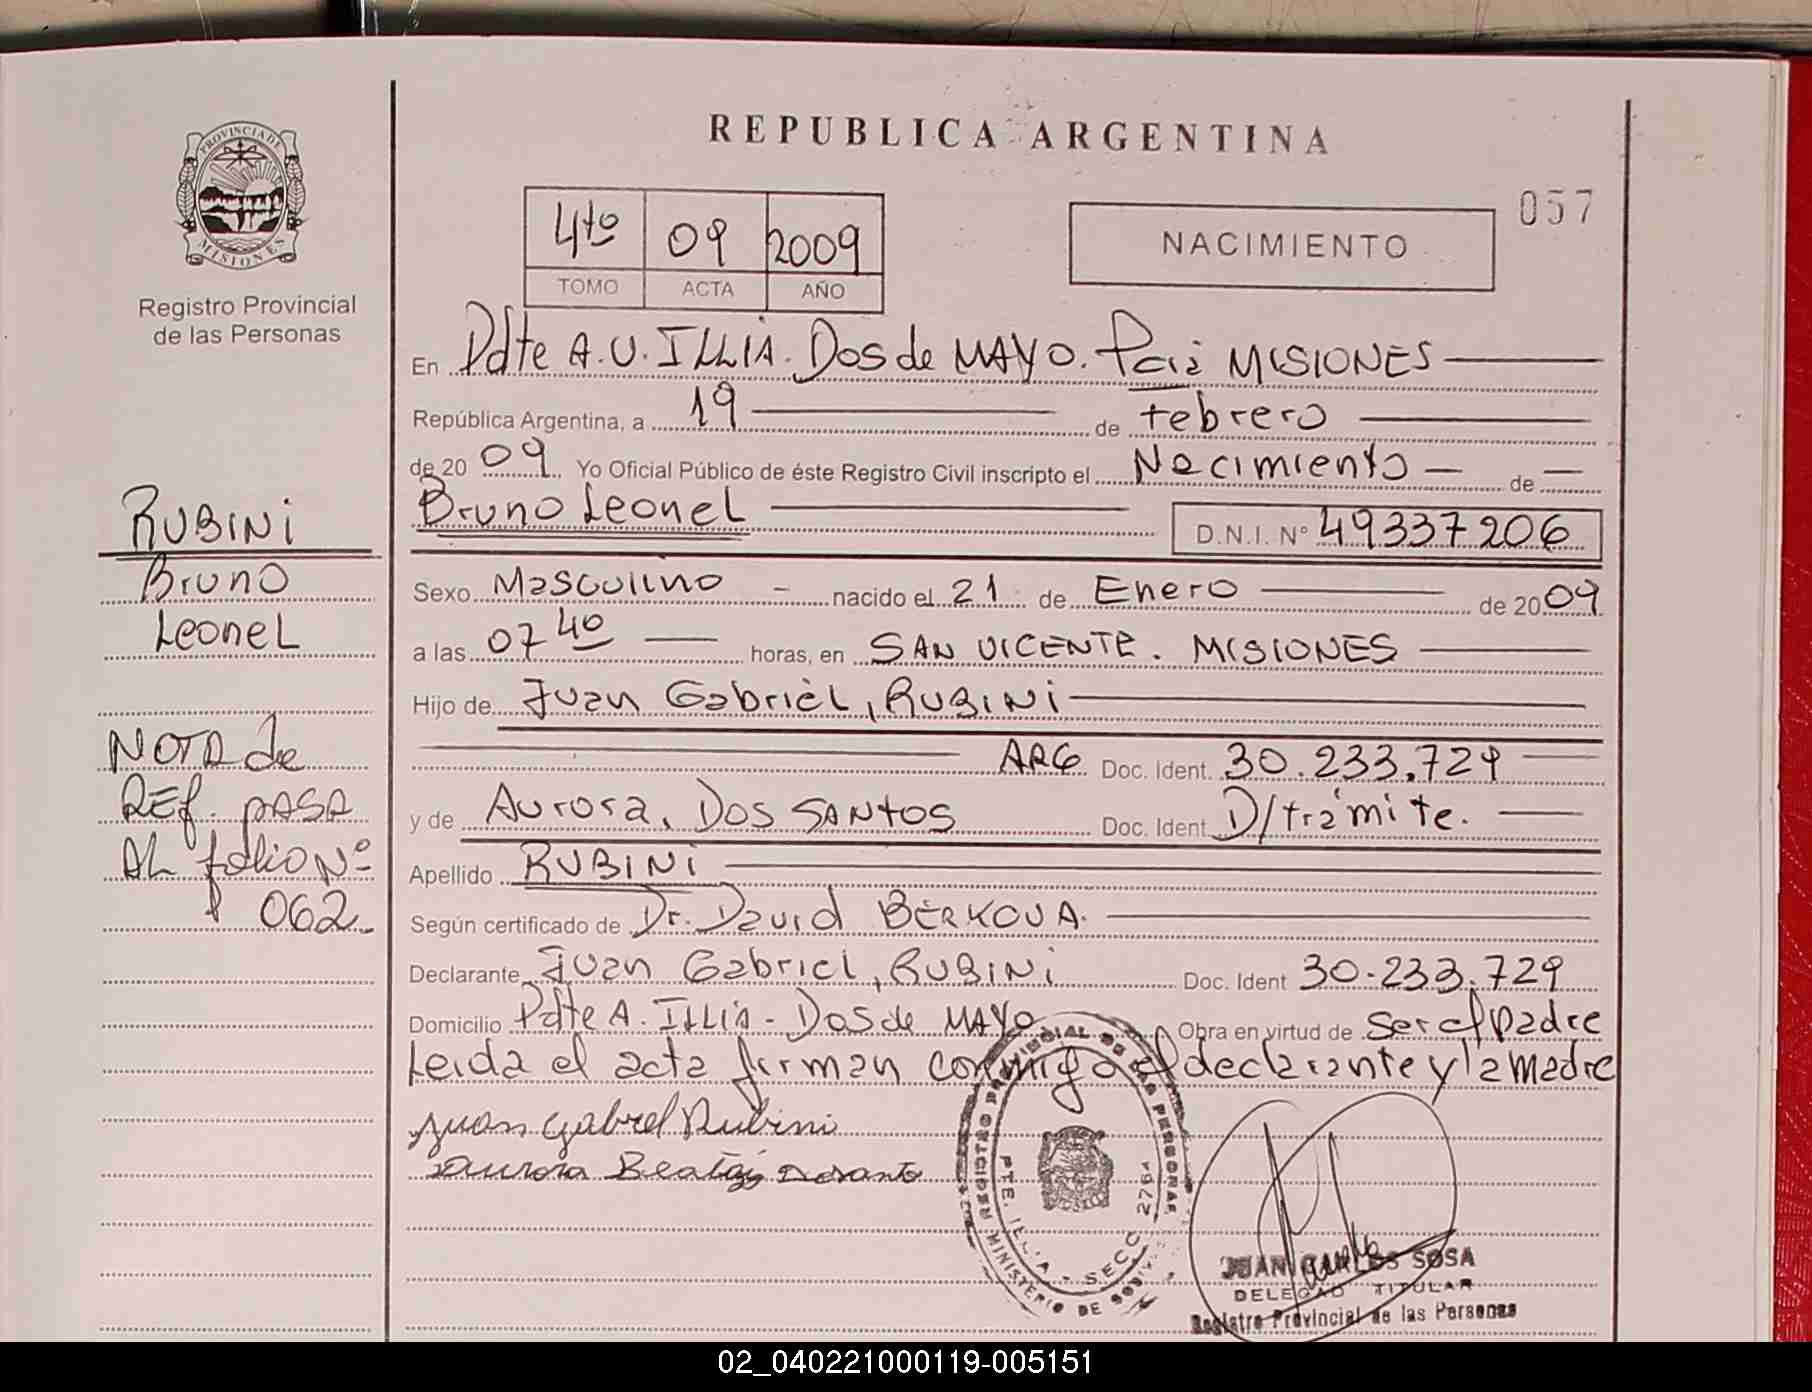 REPUBLICA ARGENTINA
057
PROVINCIA DE MISIONES
Registro Provincial
de las Personas
4to 09 2009
TOMO ACTA AÑO
NACIMIENTO
En Pdte A.U. ILLIA. Dos de MAYO. Pcia MISIONES
República Argentina, a 19 de Febrero
de 20 09 Yo Oficial Público de éste Registro Civil inscripto el Nacimiento de
Bruno Leonel D.N.I. N° 49337206
Sexo Masculino nacido el 21 de Enero de 2009
a las 07 40 horas, en SAN VICENTE. MISIONES
Hijo de Juan Gabriel, RUBINI
ARG Doc. Ident. 30.233.729
y de Aurora, Dos SANTOS Doc. Ident. D/trámite.
Apellido RUBINI
Según certificado de Dr. David BERKOVA.
Declarante Juan Gabriel, RUBINI Doc. Ident 30.233.729
Domicilio Pdte A. ILLIA - Dos de MAYO Obra en virtud de ser el padre
Leida el acta firman conmigo el declarante y la madre
Juan Gabriel Rubini
Aurora Beatriz
RUBINI
Bruno
Leonel
NOTA de
REF. PASA
AL folio N°
062
REGISTRO PROVINCIAL DE LAS PERSONAS
PTE. ILLIA - SECC 2764
MINISTERIO DE
JUAN CARLOS SOSA
DELEGADO TITULAR
Registro Provincial de las Personas
02_040221000119-005151